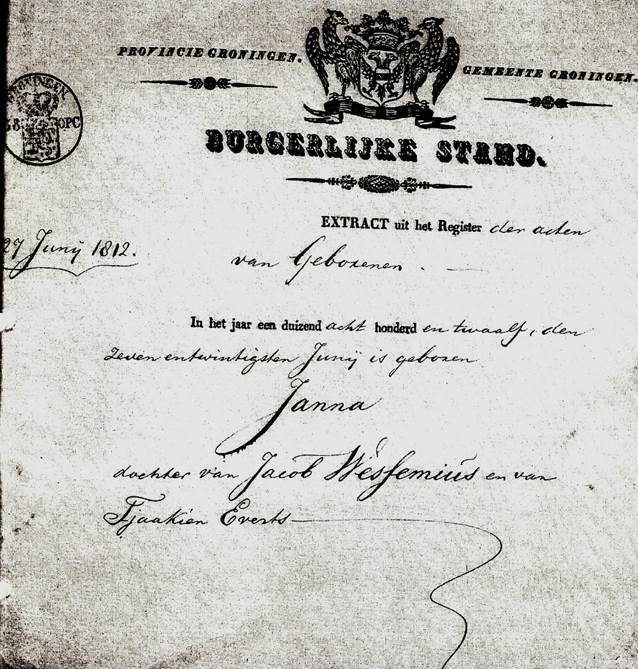 PROVINCIE GRONINGEN.
GEMEENTE GRONINGEN.
BURGERLIJKE STAND.
EXTRACT uit het Register der acten
27 Junij 1812.
van Geborenen.
In het jaar een duizend acht honderd en twaalf, den
zeven entwintigsten Junij is geboren
Janna
dochter van Jacob Wessemiùs en van
Tjaakien Everts